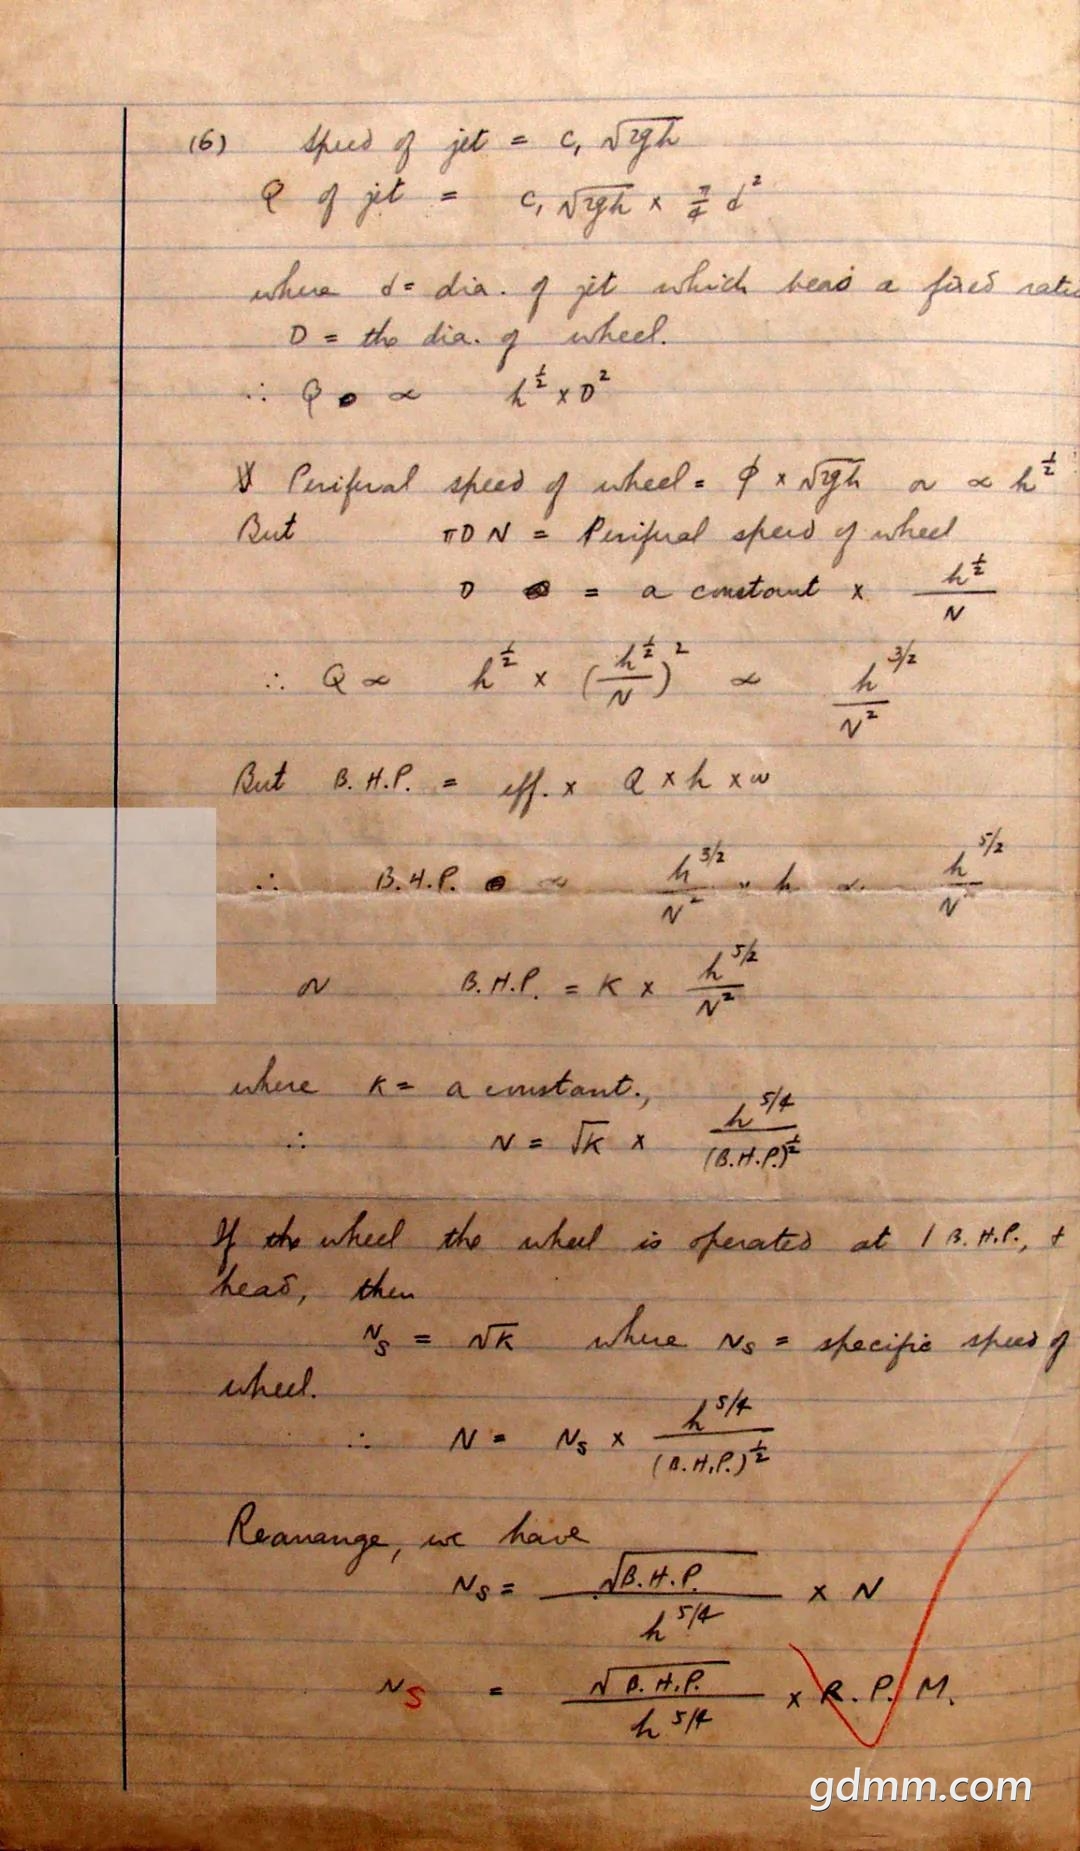 (6) Speed of jet = C₁ √2gh
Q of jet = C₁ √2gh × π/4 d²
where d = dia. of jet which bears a fixed ratio
D = the dia. of wheel.
∴ Q ∝ h^½ × D²
Periferal speed of wheel = φ × √2gh or ∝ h^½
But πDN = Periferal speed of wheel
D = a constant × h^½/N
∴ Q ∝ h^½ × (h^½/N)² ∝ h^3/2/N²
But B.H.P. = eff. × Q × h × w
∴ B.H.P. ∝ h^3/2/N² × h ∝ h^5/2/N²
or B.H.P. = K × h^5/2/N²
where K = a constant.,
∴ N = √K × h^5/4/(B.H.P.)^½
If the wheel the wheel is operated at 1 B.H.P., +
head, then
Ns = √K where Ns = specific speed of
wheel.
∴ N = Ns × h^5/4/(B.H.P.)^½
Rearange, we have
Ns = √B.H.P./h^5/4 × N
Ns = √B.H.P./h^5/4 × R.P.M.
gdmm.com